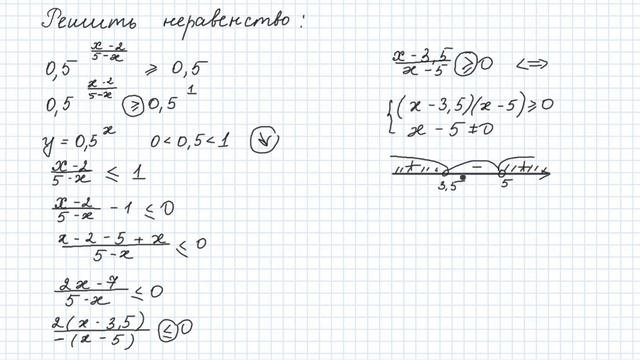 Решить неравенство:
0,5^((x-2)/(5-x)) ≥ 0,5
0,5^((x-2)/(5-x)) ≥ 0,5^1
y = 0,5^x 0 < 0,5 < 1 ↓
(x-2)/(5-x) ≤ 1
(x-2)/(5-x) - 1 ≤ 0
(x-2-5+x)/(5-x) ≤ 0
(2x-7)/(5-x) ≤ 0
2(x-3,5)/(-(x-5)) ≤ 0
(x-3,5)/(x-5) ≥ 0 <=>
{ (x-3,5)(x-5) ≥ 0
x - 5 ≠ 0
+ - +
3,5 5